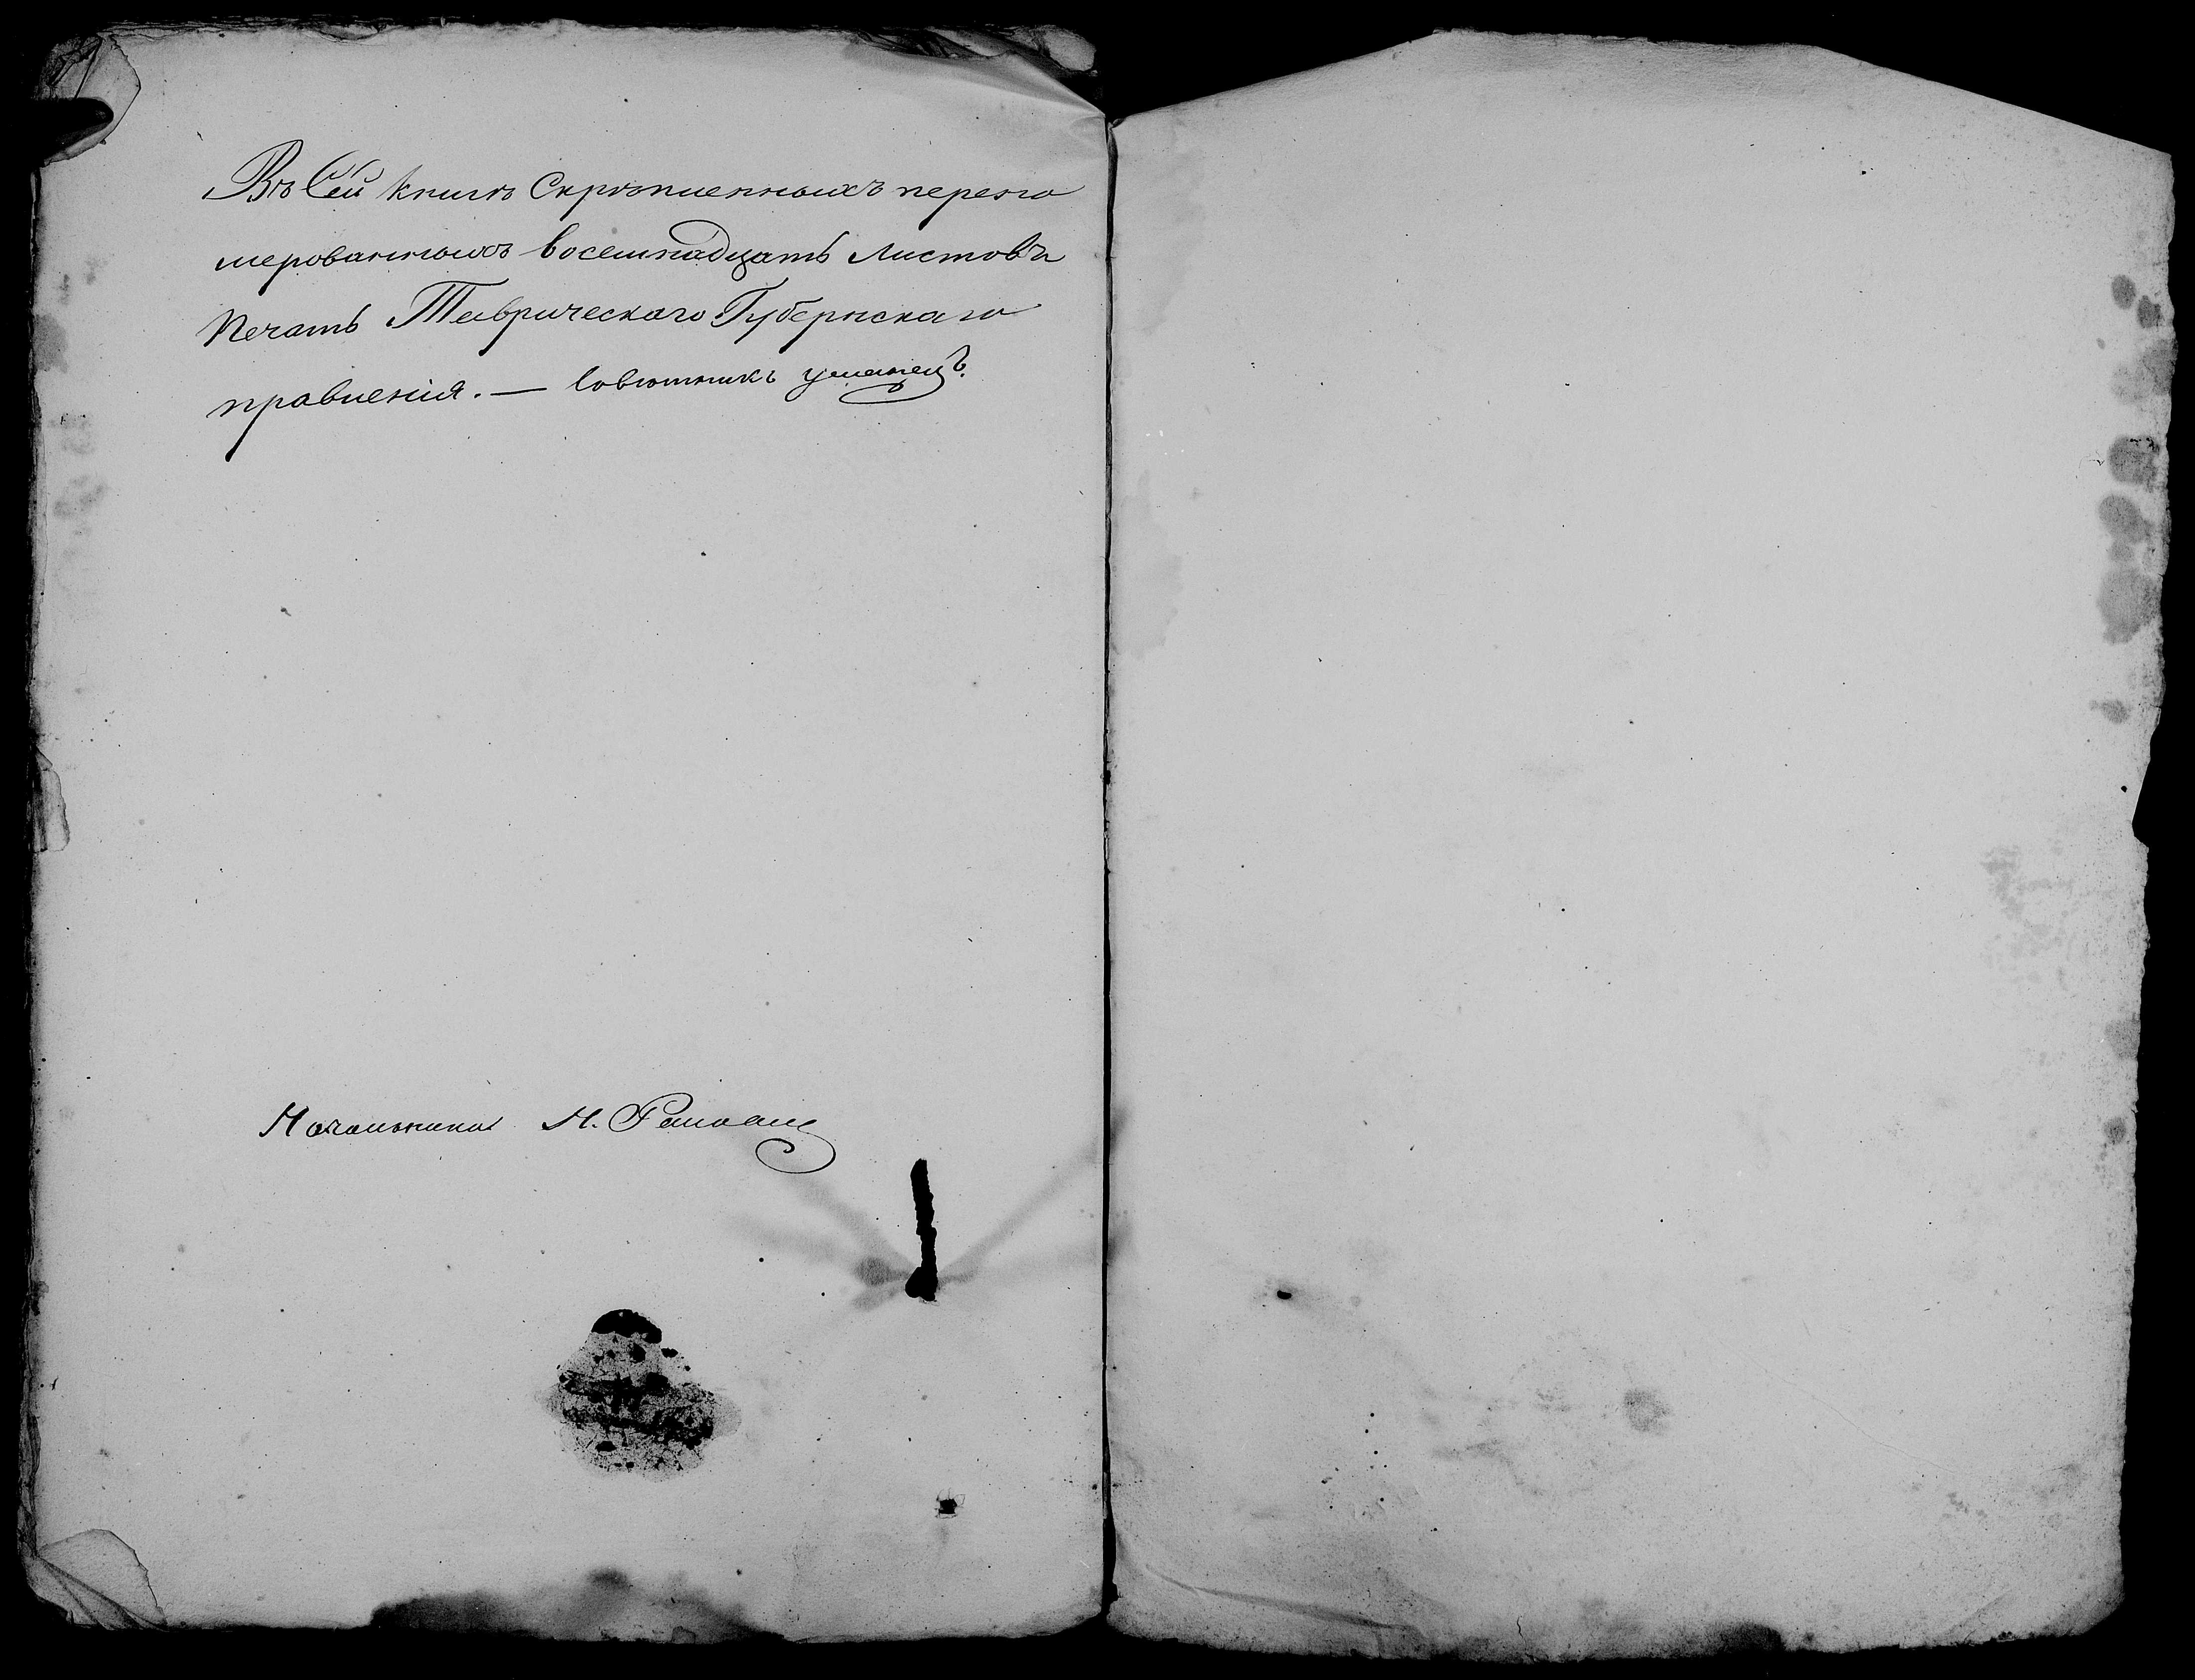 Въ Сей книгѣ Скрѣпленныхъ перено
мерованныхъ восемнадцать листовъ
Печать Таврическаго Губернскаго
правленія. — Совѣтникъ
Начальникъ Н.